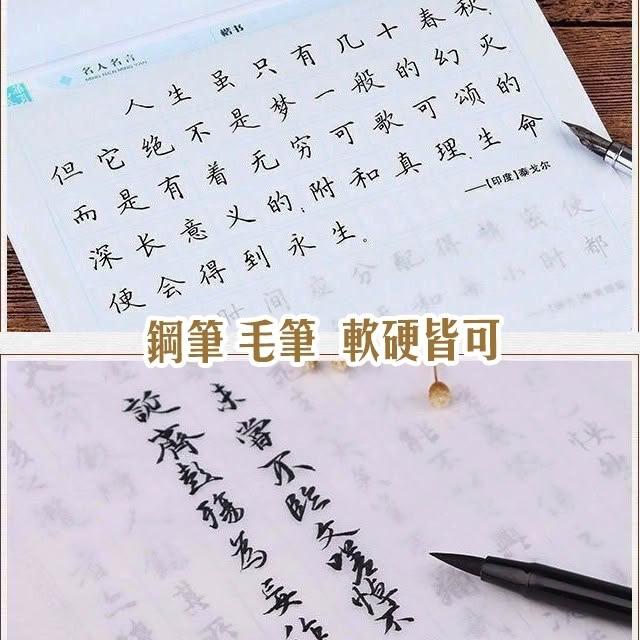 楷书
名人名言
MING REN MING YAN
人生虽只有几十春秋,
但它绝不是梦一般的幻灭
而是有着无穷可歌可颂的
深长意义的;附和真理,生命
便会得到永生。
——[印度]泰戈尔
时间应分配得精密使
和每小时都
鋼筆 毛筆 軟硬皆可
未嘗不臨文嗟悼不
誕齊彭殤為妄作